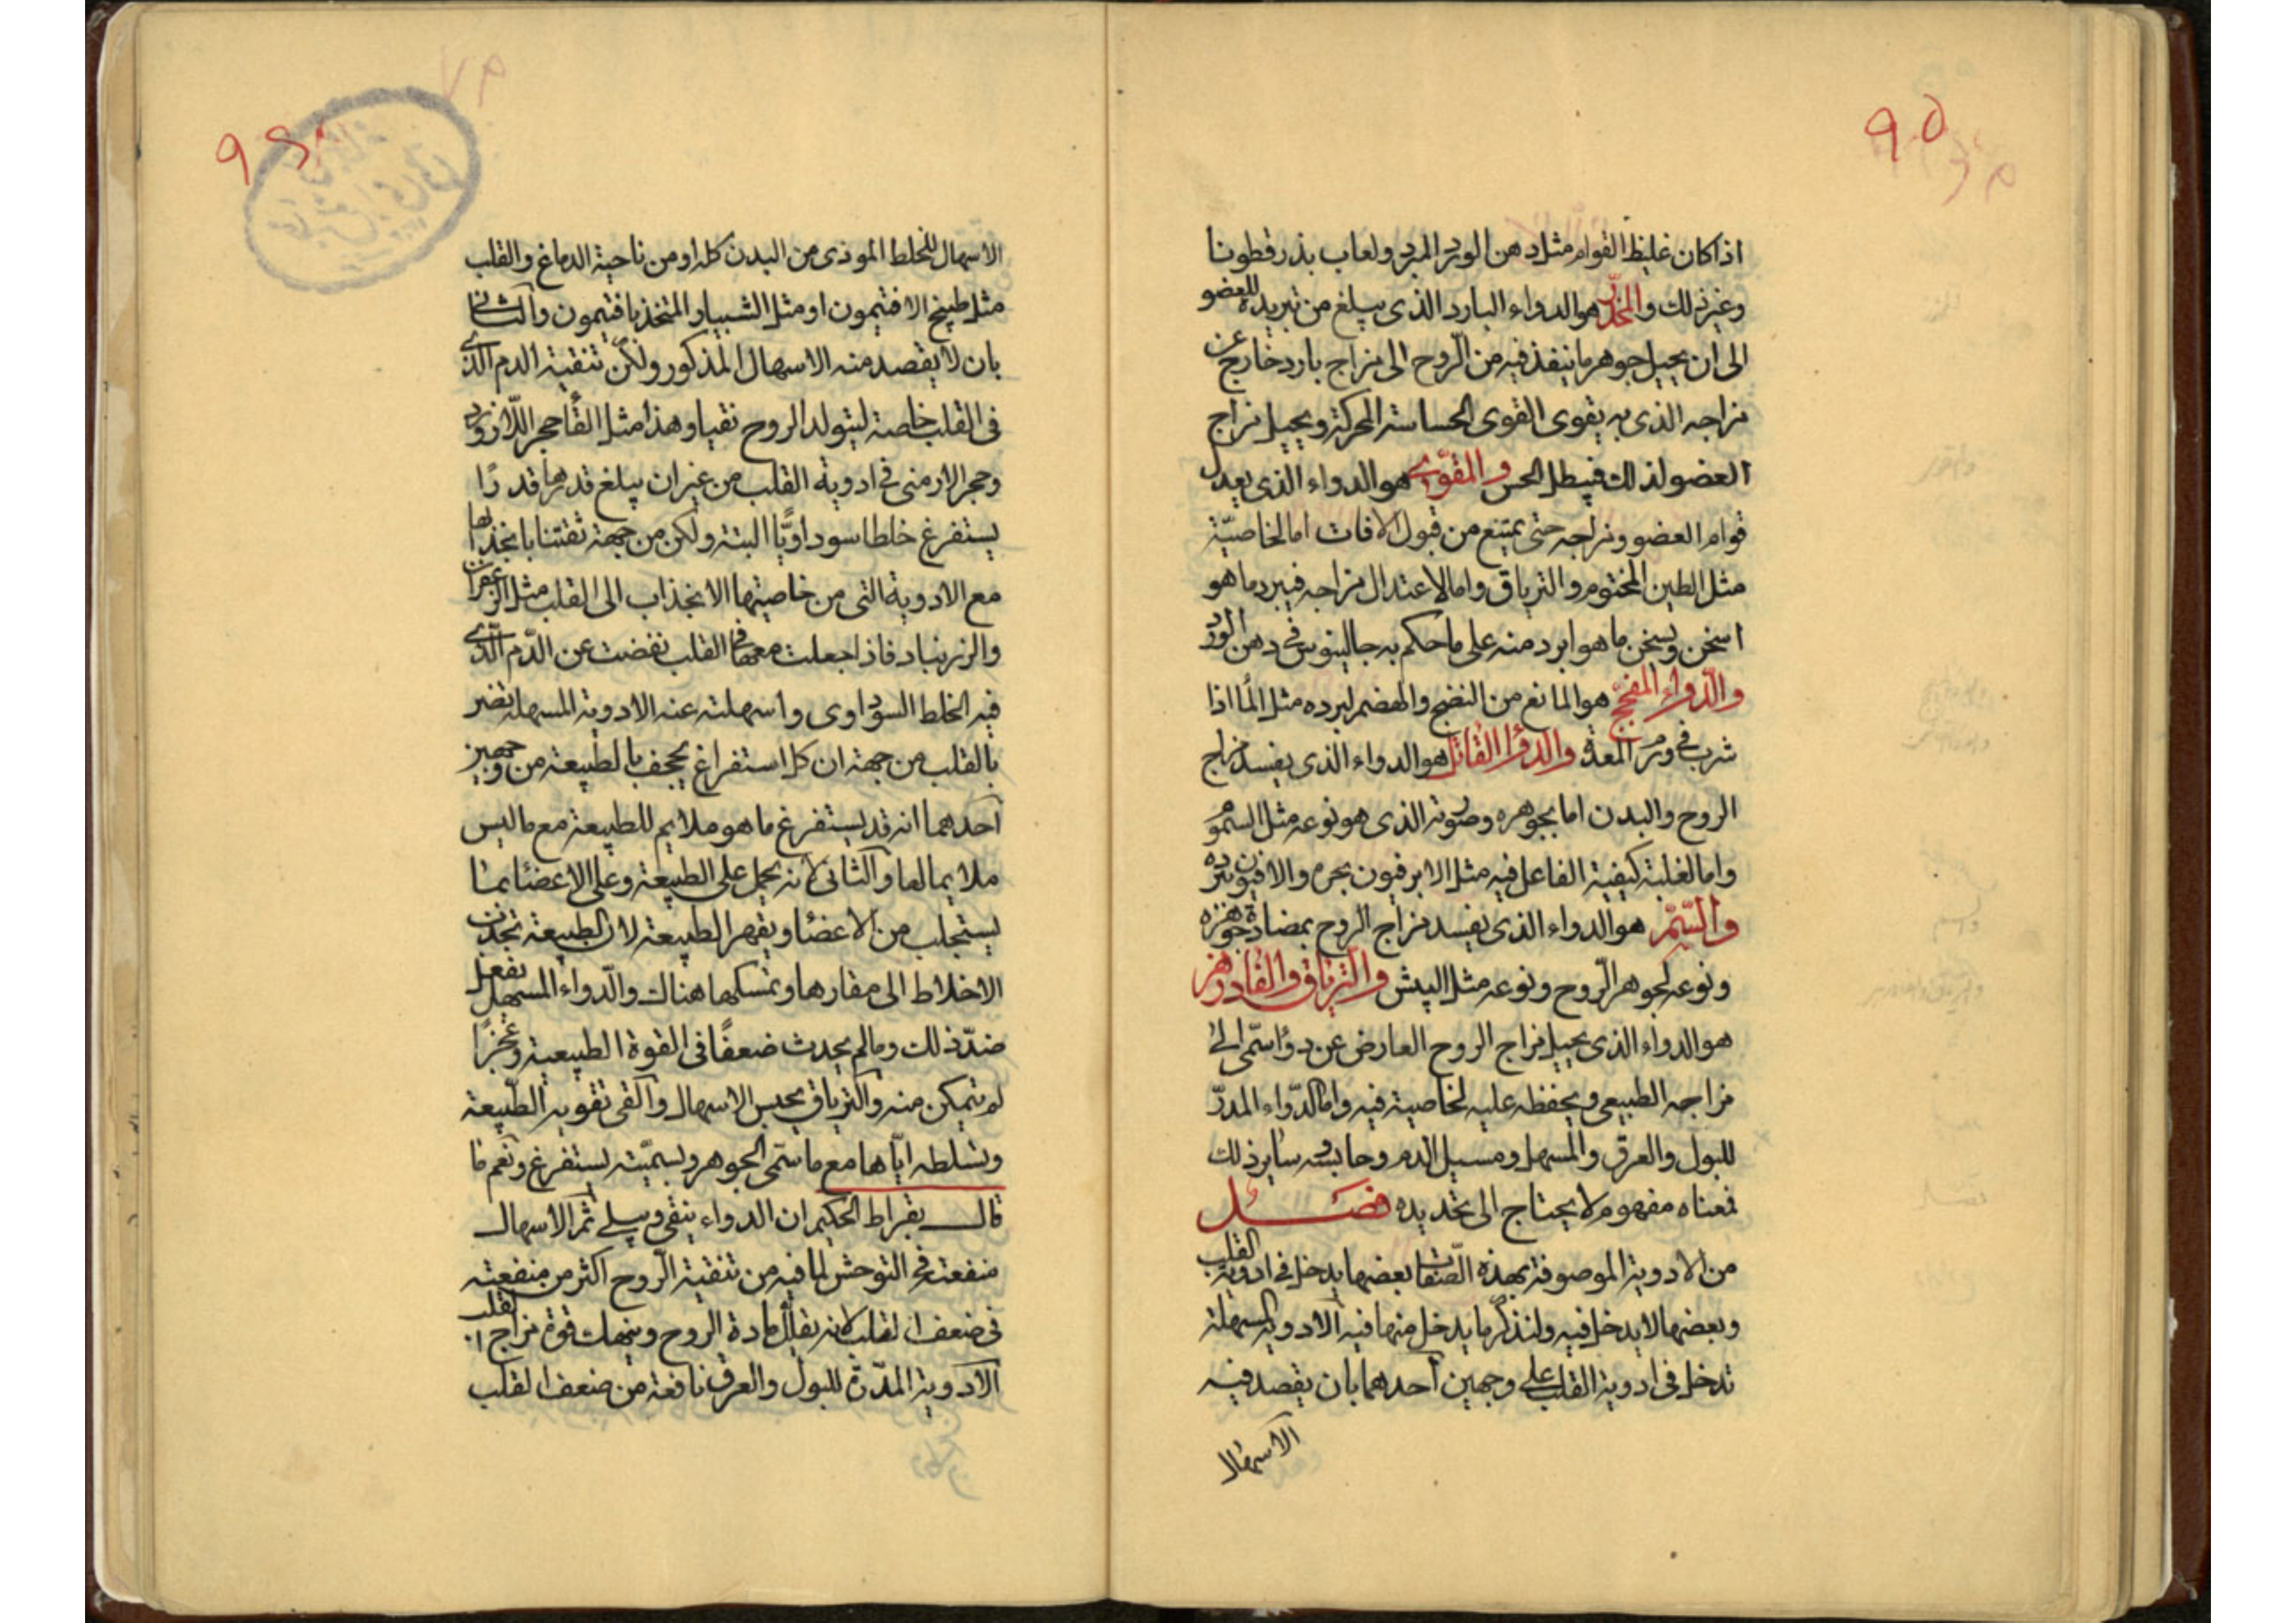 ٩٥
اذا كان غليظ القوام مثل دهن الورد المبرد ولعاب بذر قطونا
وغير ذلك والمخدّر هو الدواء البارد الذى يبلغ من تبريده للعضو
الى ان يحيل جوهر ما ينفذ فيه من الرّوح الى مزاج بارد خارج عن
مزاجه الذى به يقوى القوى الحساسة المحركة ويحيل مزاج
العضو لذلك فيبطل الحس والمقوّى هو الدواء الذى يعدل
قوام العضو ومزاجه حتى يمتنع من قبول الافات اما لخاصيّة
مثل الطين المختوم والترياق واما لاعتدال مزاجه فيبرد ما هو
اسخن ويسخن ما هو ابرد منه على ما حكم به جالينوس فى دهن الورد
والدّواء المفجّج هو المانع من النضج والهضم لبرده مثل الماء اذا
شرب فى ورم المعدة والدواء القاتل هو الدواء الذى يفسد مزاج
الروح والبدن اما بجوهره وصورته الذى هو نوعه مثل السموم
واما لغلبة كيفية الفاعل فيه مثل الابرفيون بحره والافيون ببرده
والسّمّ هو الدواء الذى يفسد مزاج الروح بمضادة جوهره
ونوعه لجوهر الرّوح ونوعه مثل البيش والترياق والفادزهر
هو الدواء الذى يحيل مزاج الروح العارض عن دواء سمّى الى
مزاجه الطبيعى ويحفظه عليه لخاصية فيه واما الدّواء المدرّ
للبول والعرق والمسهل ومسيل الدم وحابسه سايرذلك
فمعناه مفهوم لا يحتاج الى تحديده فصل
من الادوية الموصوفة بهذه الصّفات بعضها يدخل فى ادوية القلب
وبعضها لا يدخل فيه ولنذكر ما يدخل منها فيه الادوية المسهلة
تدخل فى ادوية القلب على وجهين احدهما بان يقصد فيه
الاسهال
الاسهال للخلط الموذى من البدن كله او من ناحية الدماغ والقلب
مثل طبيخ الافتيمون او مثل الشبيار المتخذ بافتيمون والثانى
بان لا يقصد منه الاسهال المذكور ولكن تنقية الدم الذى
فى القلب خاصة ليتولد الروح نقيا وهذا مثل القاء حجر اللّازورد
وحجر الارمنى فى ادوية القلب من غير ان يبلغ قدرهما قدرًا
يستفرغ خلطا سوداويًّا البتة ولكن من جهة ثقتنا بانجذابها
مع الادوية التى من خاصيتها الانجذاب الى القلب مثل الزعفران
والزرنباد فاذا جعلت معها فى القلب نفضت عن الدّم الّذى
فيه الخلط السوداوى واسهلته عنه الادوية المسهلة تضر
بالقلب من جهة ان كل استفراغ يجحف بالطبيعة من وجهين
احدهما انه قد يستفرغ ما هو ملايم للطبيعة مع ما ليس
ملايما لها والثانى لانه يحمل على الطبيعة وعلى الاعضاء بما
يستجلب من الاعضاء ويقهر الطبيعة لان الطبيعة تجذب
الاخلاط الى مقارها وتمسكها هناك والدّواء المسهل يفعل
ضدّ ذلك وما لم يحدث ضعفًا فى القوة الطبيعية وعجزًا
لم يتمكن منه والترياق يحبس الاسهال والقى تقويه الطّبيعة
وتسلطه ايّاها مع ما سمّى الجوهر وبسميّته يستفرغ ونعم ما
قال بقراط الحكيم ان الدواء ينقى ويبلى ثم الاسهال
منفعته فى التوحش لما فيه من تنقية الرّوح اكثر من منفعته
فى ضعف القلب لانه يقلل مادة الروح وينهك قوة مزاج القلب
الادوية المدّرة للبول والعرق نافعة من ضعف القلب